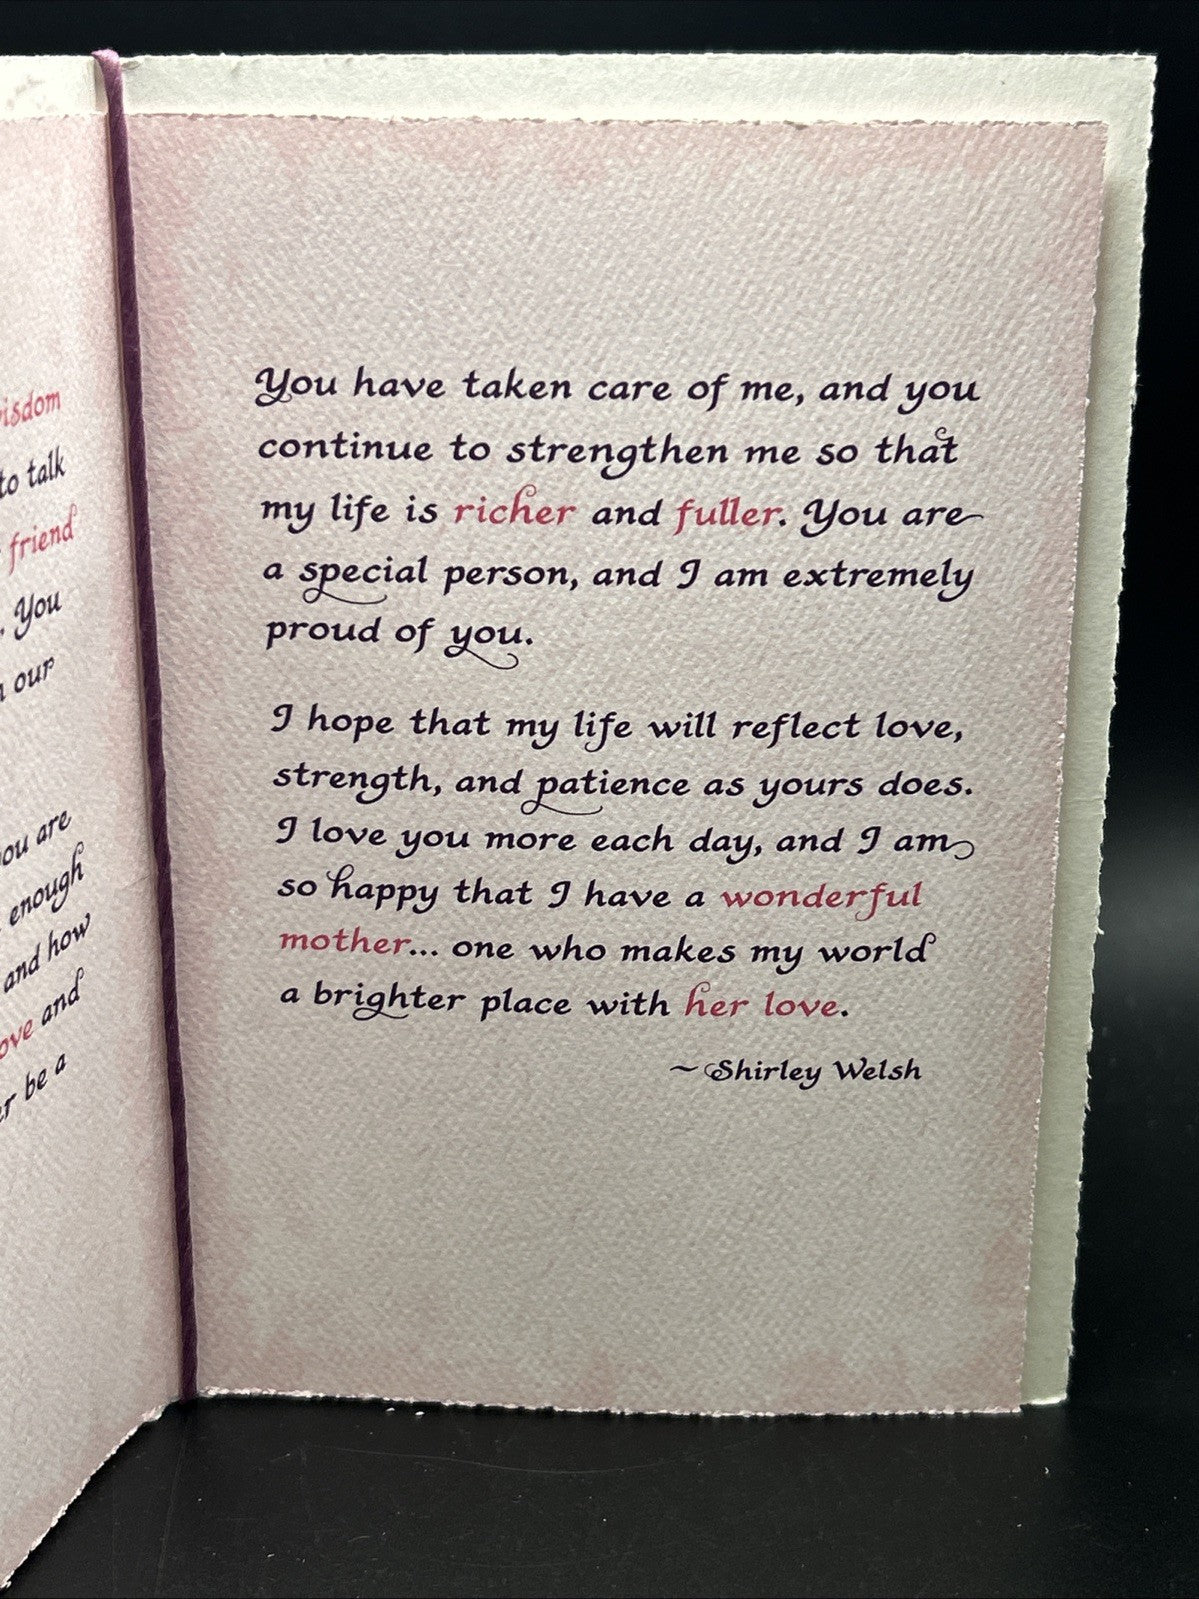 isdom
to talk
friend
. You
our
ou are
enough
and how
ove and
er be a
You have taken care of me, and you
continue to strengthen me so that
my life is richer and fuller. You are
a special person, and I am extremely
proud of you.
I hope that my life will reflect love,
strength, and patience as yours does.
I love you more each day, and I am
so happy that I have a wonderful
mother... one who makes my world
a brighter place with her love.
~ Shirley Welsh